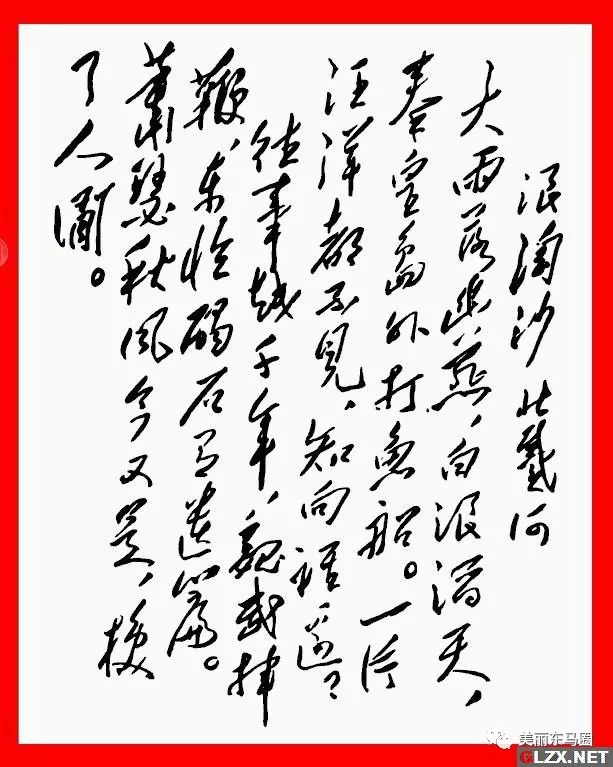 浪淘沙 北戴河
大雨落幽燕，白浪滔天，
秦皇島外打魚船。一片
汪洋都不見，知向誰邊？
往事越千年，魏武揮
鞭，東臨碣石有遺篇。
蕭瑟秋風今又是，換
了人間。
美丽东马圈
GLZX.NET